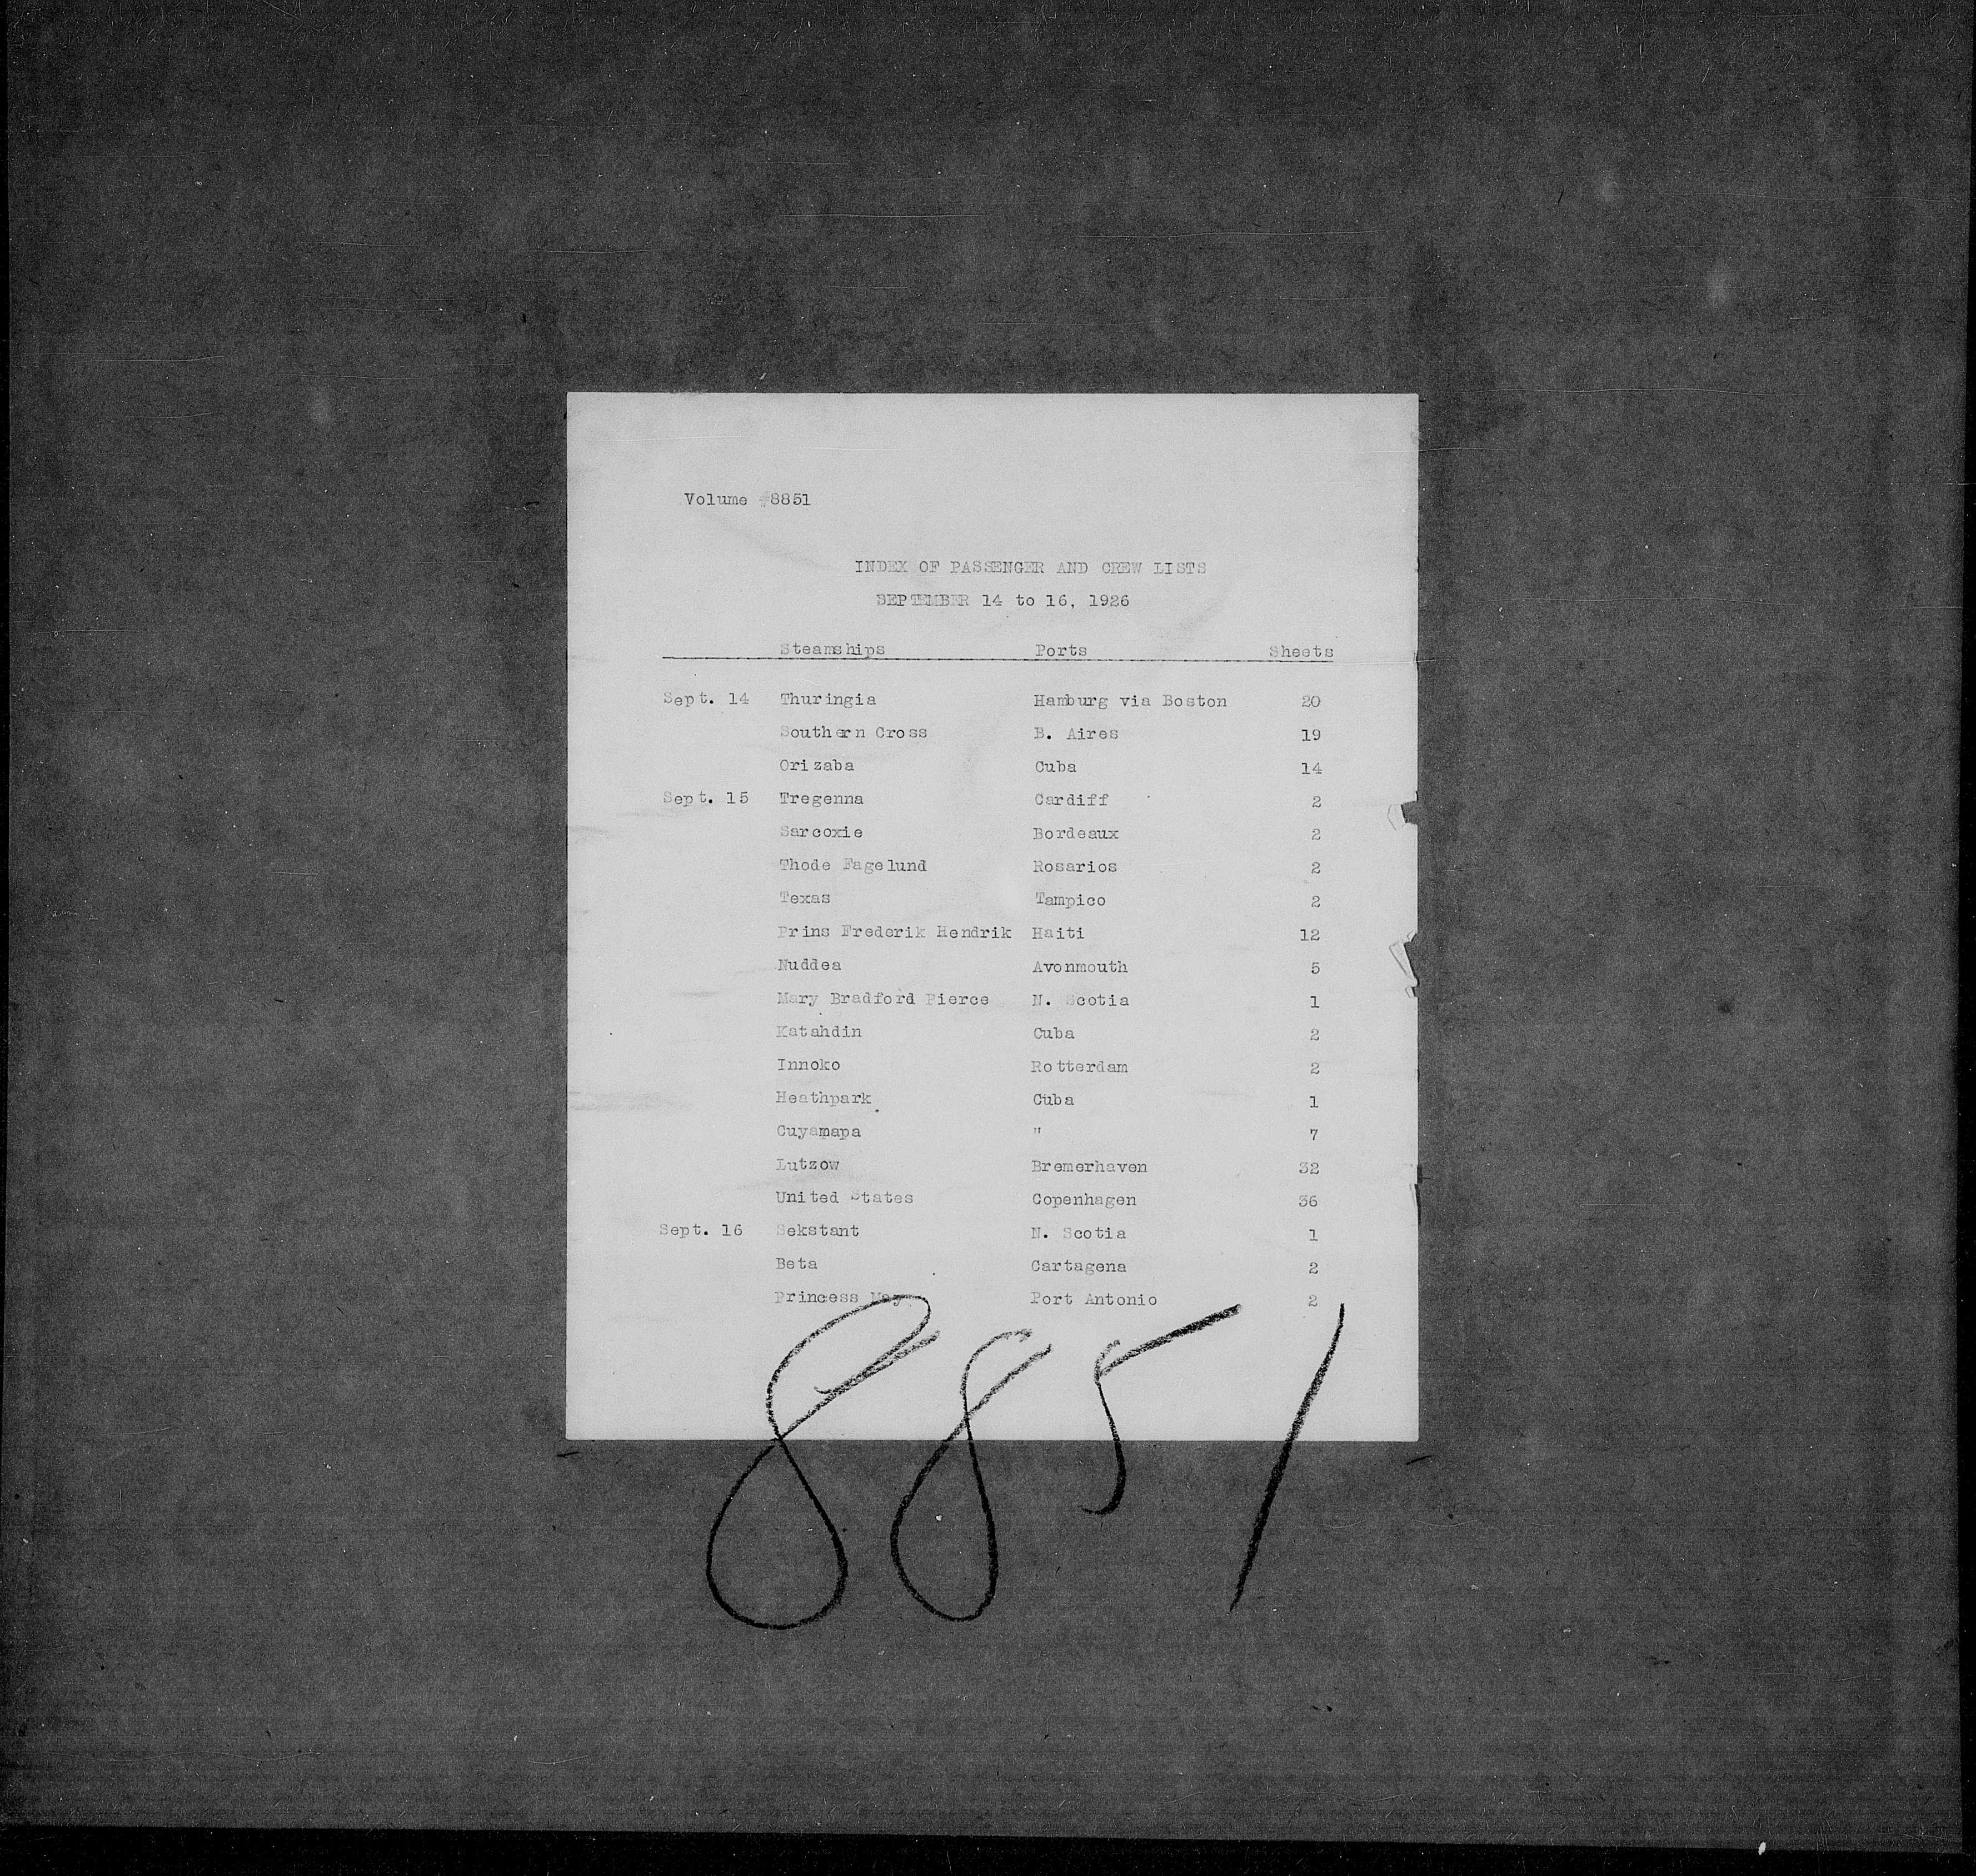 Volume #8851
INDEX OF PASSENGER AND CREW LISTS
SEPTEMBER 14 to 16, 1926
Steamships Ports Sheets
Sept. 14 Thuringia Hamburg via Boston 20
Southern Cross B. Aires 19
Orizaba Cuba 14
Sept. 15 Tregenna Cardiff 2
Sarcoxie Bordeaux 2
Thode Fagelund Rosarios 2
Texas Tampico 2
Prins Frederik Hendrik Haiti 12
Nuddea Avonmouth 5
Mary Bradford Pierce N. Scotia 1
Katahdin Cuba 2
Innoko Rotterdam 2
Heathpark Cuba 1
Cuyamapa " 7
Lutzow Bremerhaven 32
United States Copenhagen 36
Sept. 16 Sekstant N. Scotia 1
Beta Cartagena 2
Princess May Port Antonio 2
8851